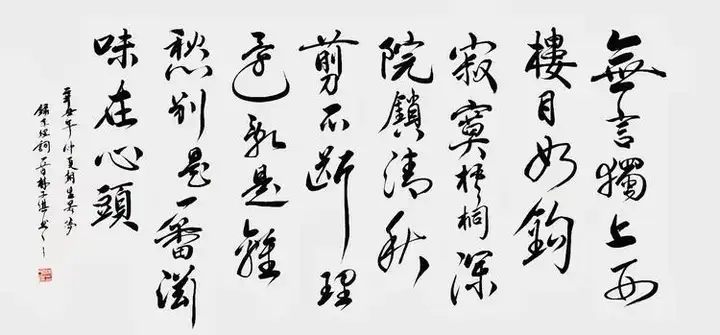 無言獨上西
樓月如鈎
寂寞梧桐深
院鎖清秋
剪不斷理
還亂是離
愁別是一番滋
味在心頭
辛丑年仲夏
錄李煜詞